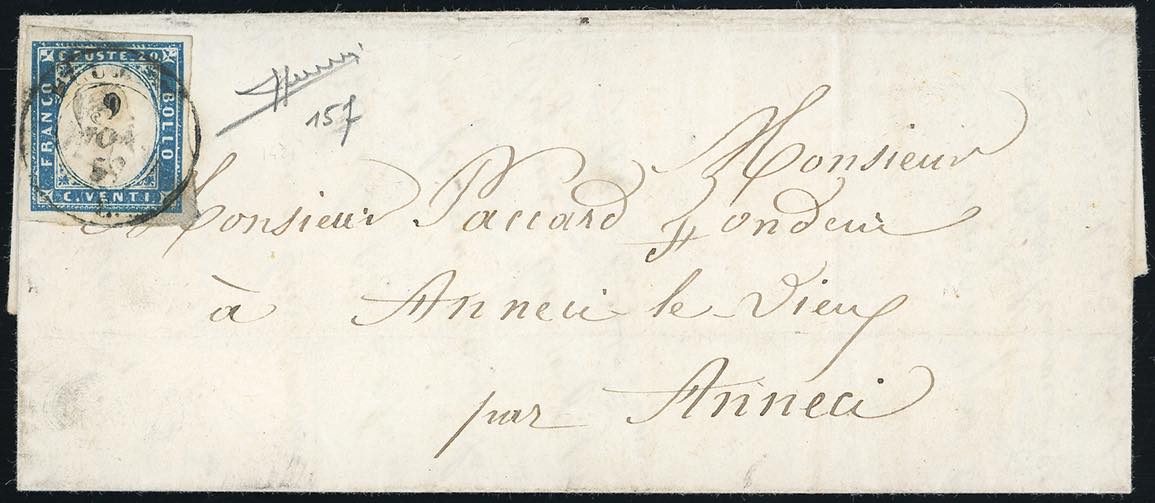 C. POSTE 20
FRANCO
BOLLO
C. VENTI.
9
NOV
59
157
Monsieur
Monsieur Paccard Fondeur
à Anneci le Vieux
par Anneci